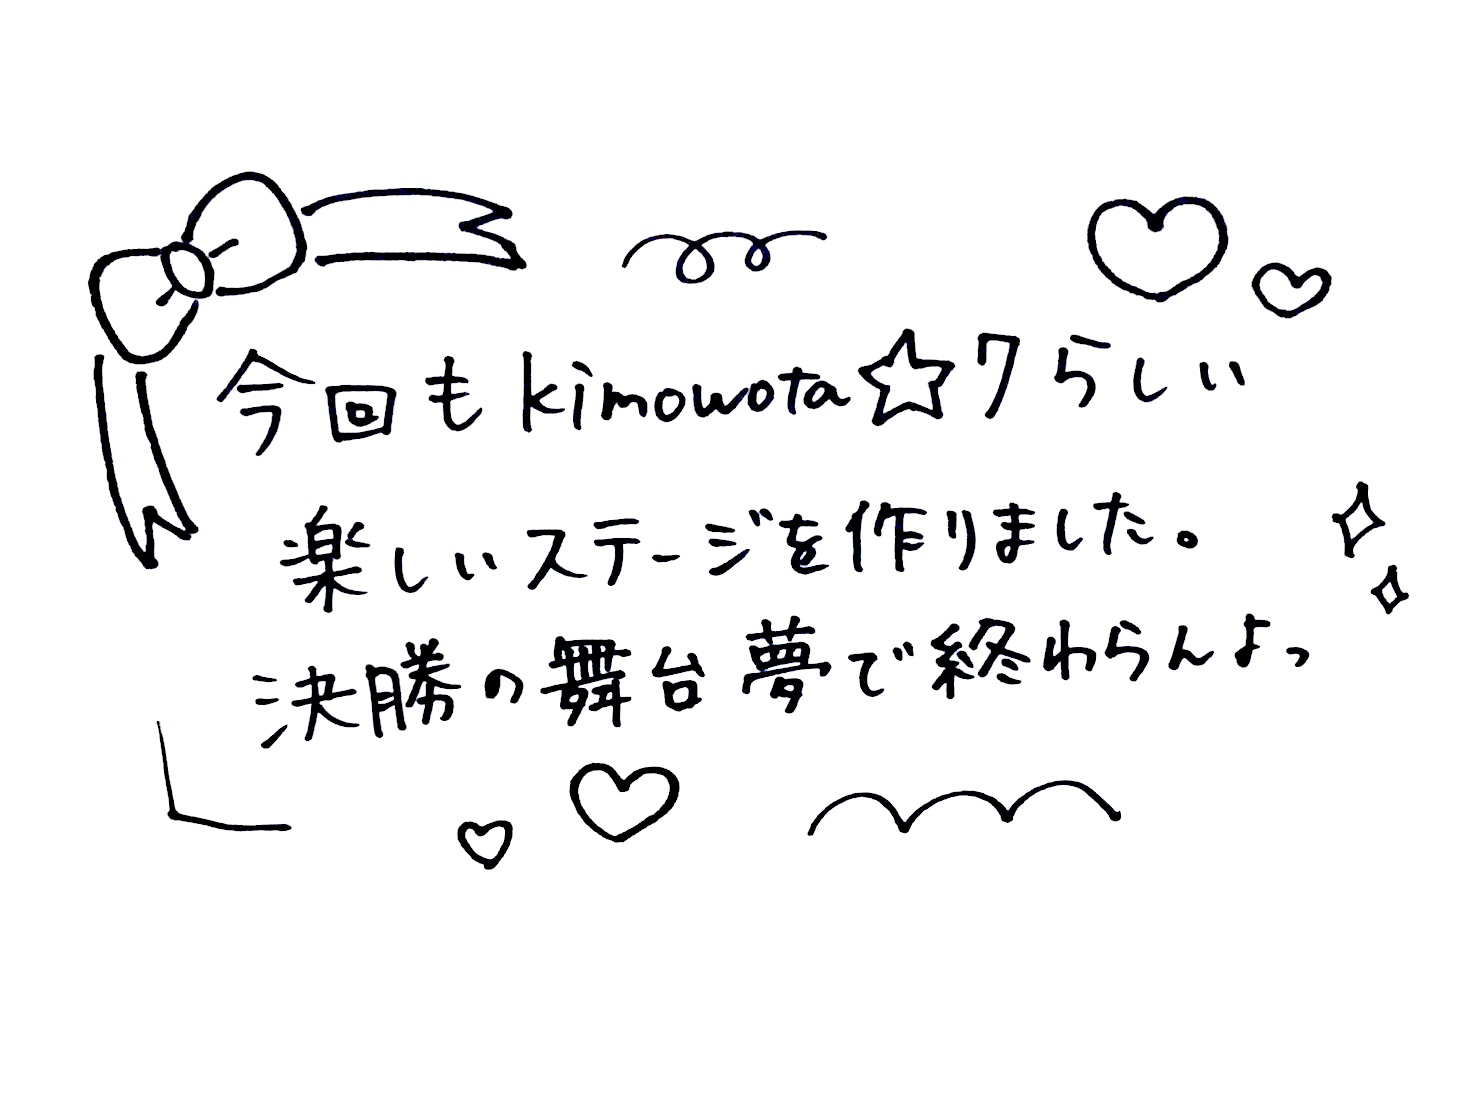 今回もkimowota☆7らしい
楽しいステージを作りました。
決勝の舞台夢で終わらんよっ